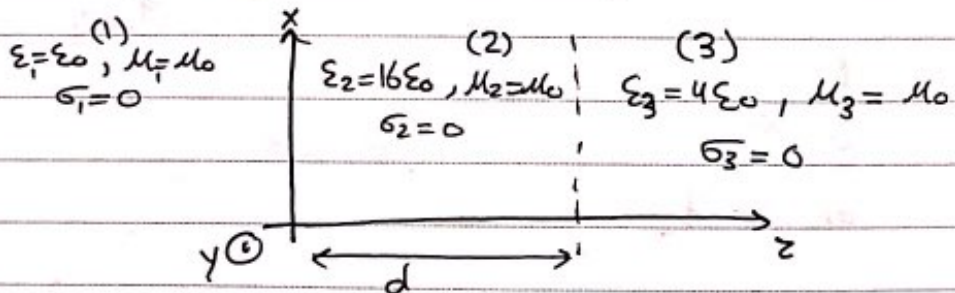 x
(1) (2) (3)
ε₁=ε₀, μ₁=μ₀
σ₁=0
ε₂=16ε₀, μ₂=μ₀
σ₂=0
ε₃=4ε₀, μ₃=μ₀
σ₃=0
y z
d